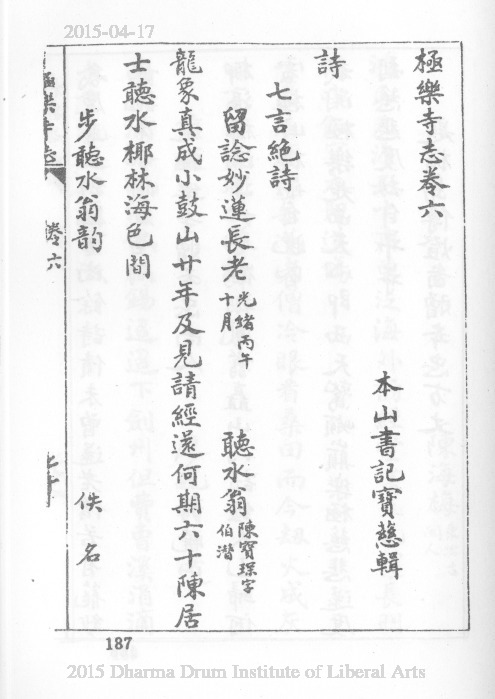 2015-04-17
極樂寺志卷六
本山書記寶慈輯
詩
七言絕詩
留諗妙蓮長老 光緒丙午十月 聽水翁 陳寶琛字伯潛
龍象真成小鼓山廿年及見請經還何期六十陳居
士聽水椰林海色間
步聽水翁韵 佚名
極樂寺志 卷六
187
2015 Dharma Drum Institute of Liberal Arts